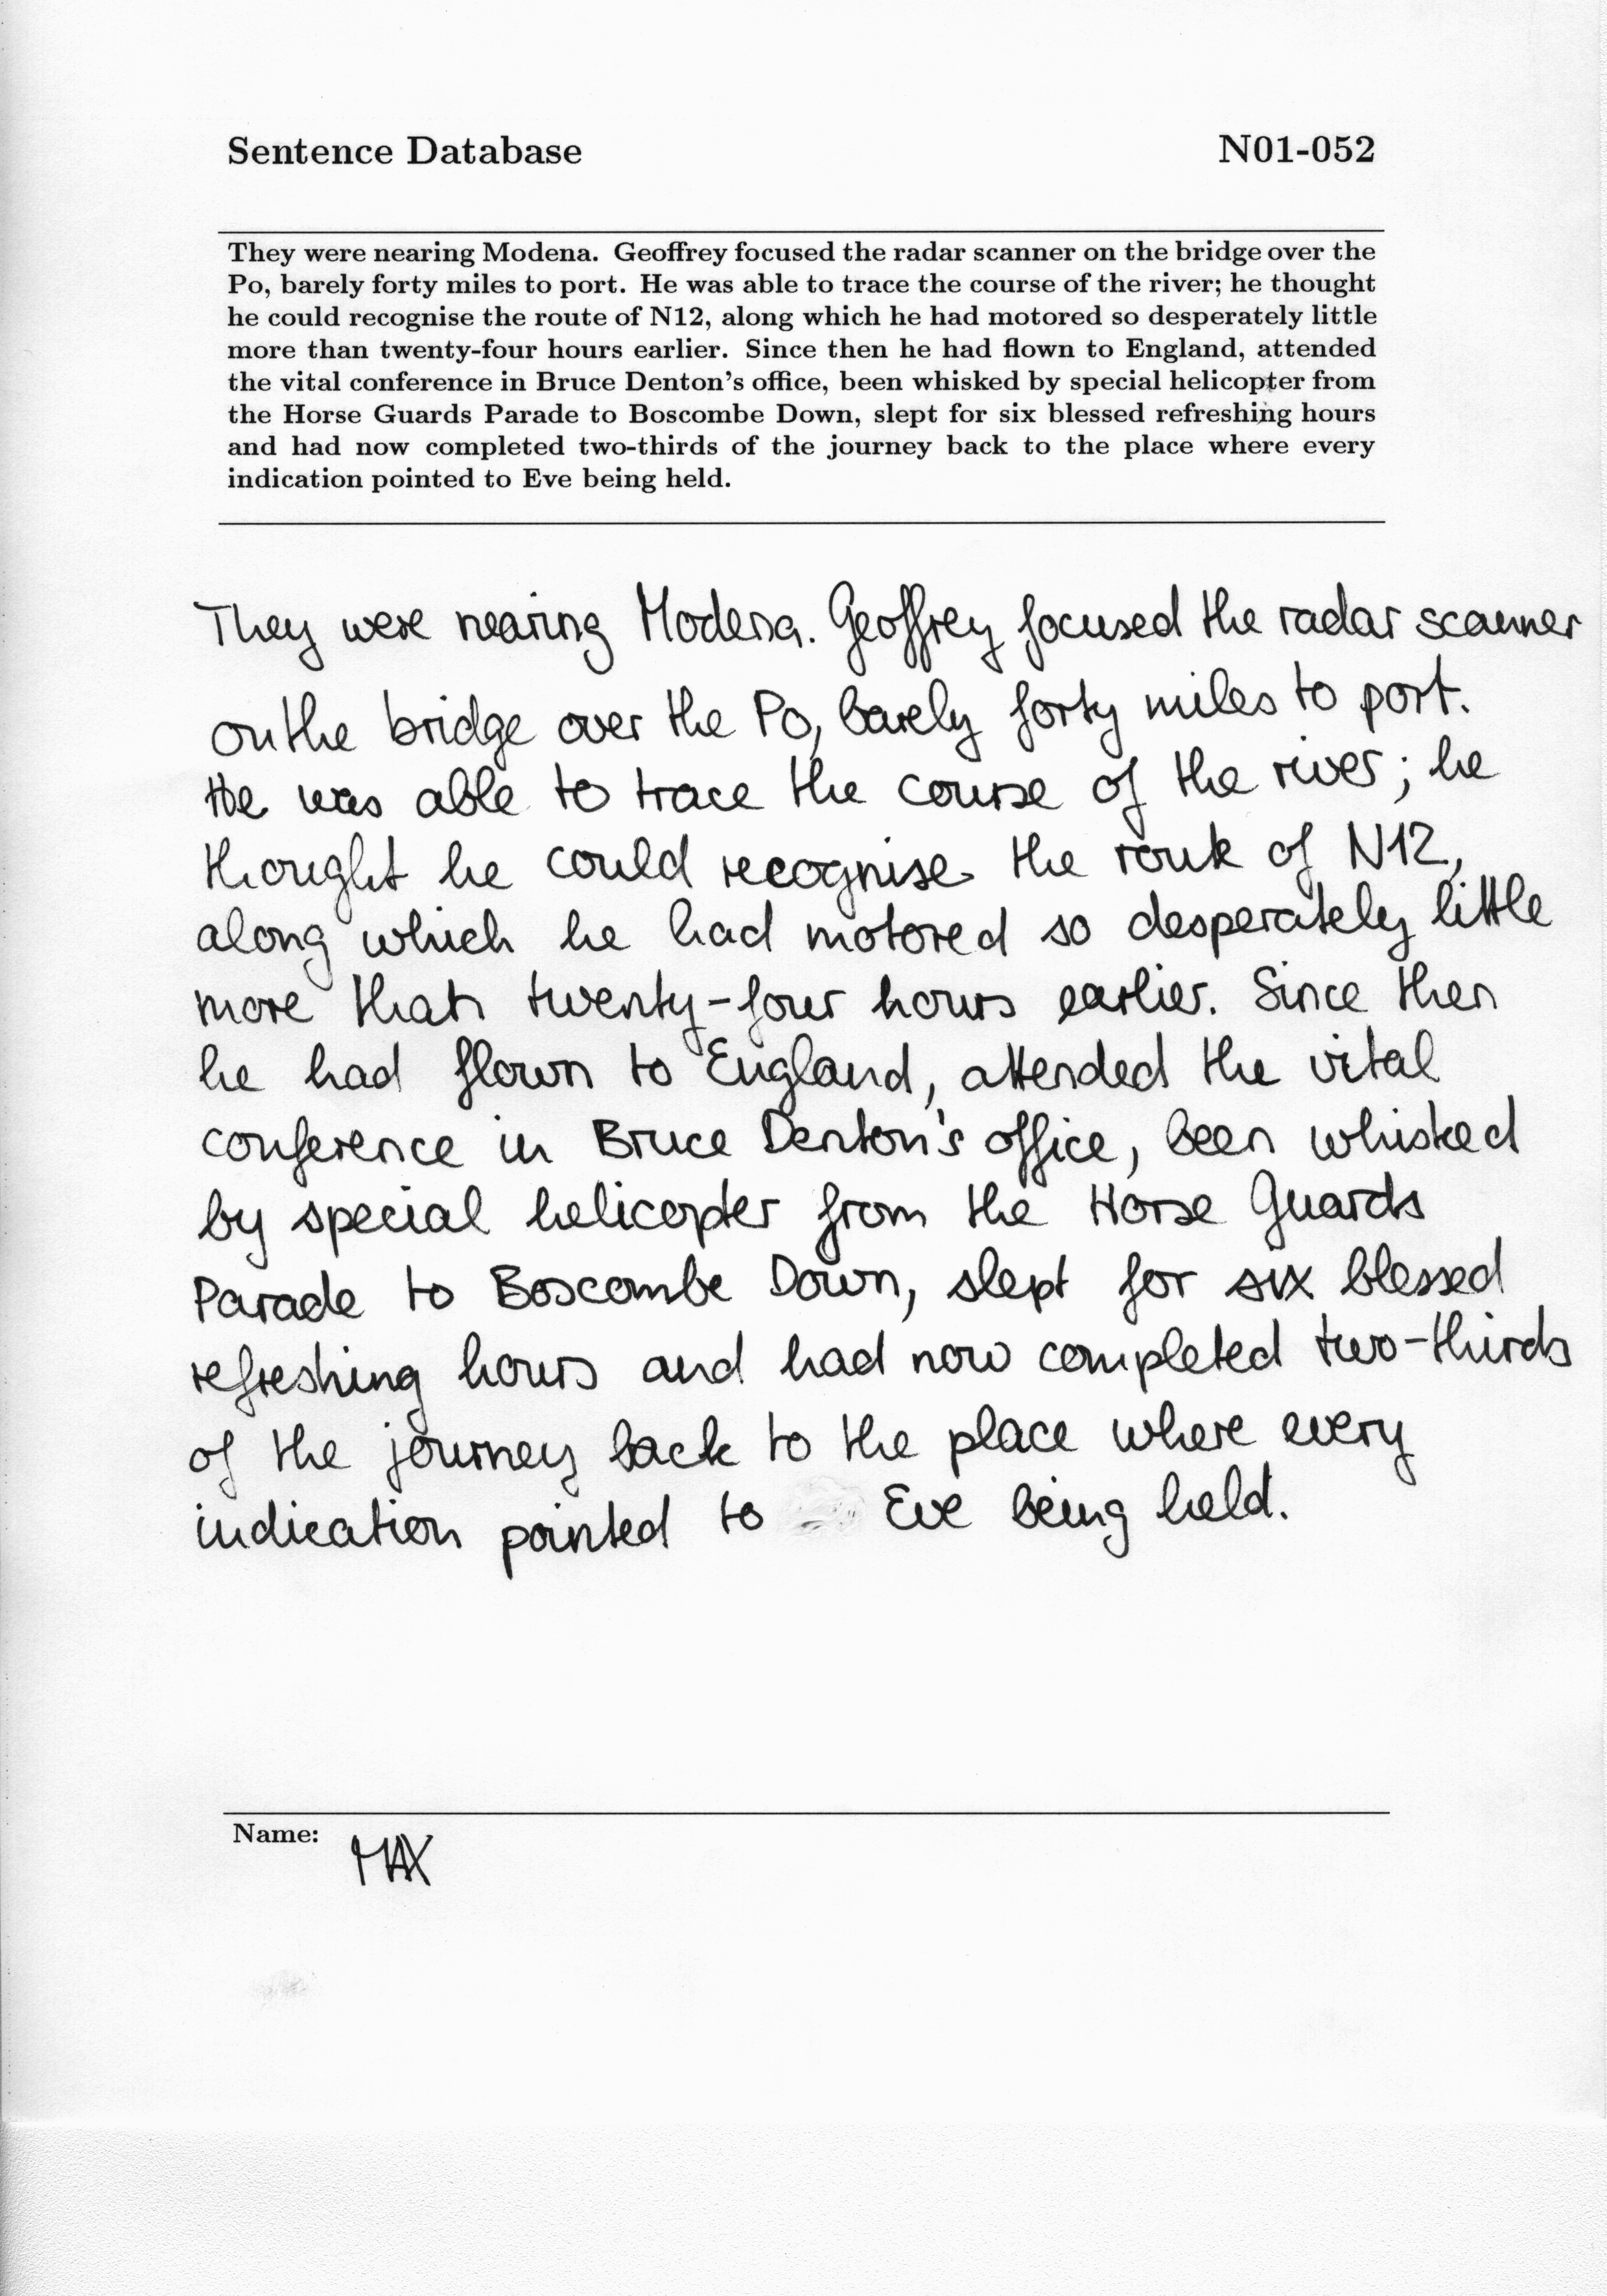 Sentence Database N01-052
They were nearing Modena. Geoffrey focused the radar scanner on the bridge over the
Po, barely forty miles to port. He was able to trace the course of the river; he thought
he could recognise the route of N12, along which he had motored so desperately little
more than twenty-four hours earlier. Since then he had flown to England, attended
the vital conference in Bruce Denton's office, been whisked by special helicopter from
the Horse Guards Parade to Boscombe Down, slept for six blessed refreshing hours
and had now completed two-thirds of the journey back to the place where every
indication pointed to Eve being held.
They were nearing Modena. Geoffrey focused the radar scanner
on the bridge over the Po, barely forty miles to port.
He was able to trace the course of the river; he
thought he could recognise the route of N12,
along which he had motored so desperately little
more than twenty-four hours earlier. Since then
he had flown to England, attended the vital
conference in Bruce Denton's office, been whisked
by special helicopter from the Horse Guards
Parade to Boscombe Down, slept for six blessed
refreshing hours and had now completed two-thirds
of the journey back to the place where every
indication pointed to Eve being held.
Name: MAX